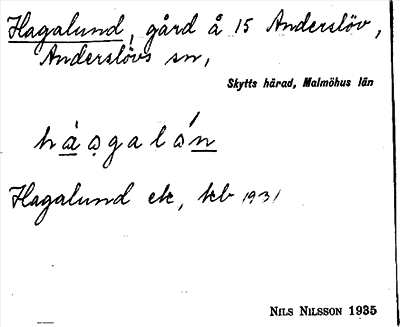 Hagalund, gård å 15 Anderslöv,
Anderslövs sn,
Skytts härad, Malmöhus län
hàǫgalón
Hagalund ek, kb 1931
NILS NILSSON 1935